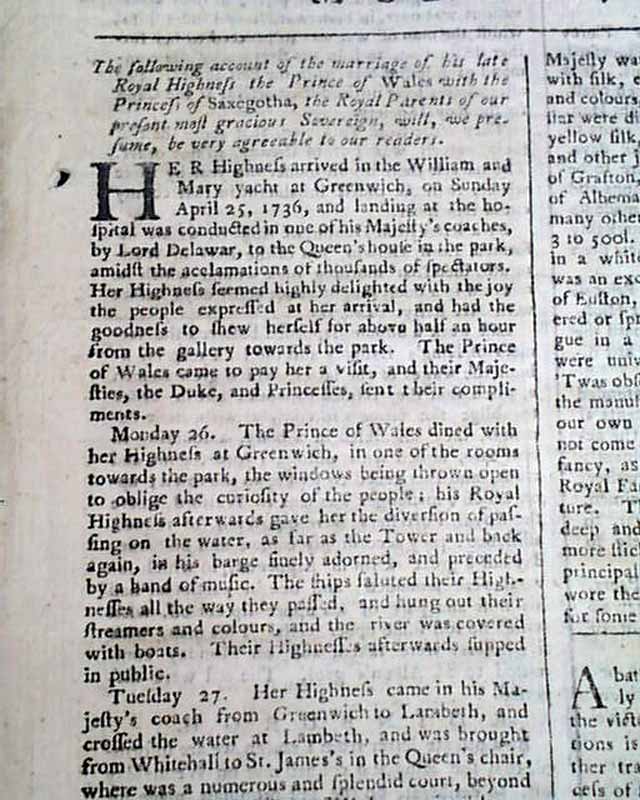 The following account of the marriage of his late
Royal Highneſs the Prince of Wales with the
Princeſs of Saxegotha, the Royal Parents of our
preſent moſt gracious Sovereign, will, we pre-
ſume, be very agreeable to our readers.
HER Highneſs arrived in the William and
Mary yacht at Greenwich, on Sunday
April 25, 1736, and landing at the ho-
ſpital was conducted in one of his Majeſty's coaches,
by Lord Delawar, to the Queen's houſe in the park,
amidſt the acclamations of thouſands of ſpectators.
Her Highneſs ſeemed highly delighted with the joy
the people expreſſed at her arrival, and had the
goodneſs to ſhew herſelf for above half an hour
from the gallery towards the park. The Prince
of Wales came to pay her a viſit, and their Maje-
ſties, the Duke, and Princeſſes, ſent their compli-
ments.
Monday 26. The Prince of Wales dined with
her Highneſs at Greenwich, in one of the rooms
towards the park, the windows being thrown open
to oblige the curioſity of the people; his Royal
Highneſs afterwards gave her the diverſion of paſ-
ſing on the water, as far as the Tower and back
again, in his barge finely adorned, and preceded
by a band of muſic. The ſhips ſaluted their High-
neſſes all the way they paſſed, and hung out their
ſtreamers and colours, and the river was covered
with boats. Their Highneſſes afterwards ſupped
in public.
Tueſday 27. Her Highneſs came in his Ma-
jeſty's coach from Greenwich to Lambeth, and
croſſed the water at Lambeth, and was brought
from Whitehall to St. James's in the Queen's chair,
where was a numerous and ſplendid court, beyond
Majeſty wa
with ſilk,
and colours
liar were di
yellow ſilk,
and other
of Grafton,
of Albema
many othe
3 to 500l.
in a white
was an exc
of Euſton,
ered or ſpr
gue in a
were univ
'Twas obſ
the manuf
our own
not come
fancy, as
Royal Fa
ture. T
deep and
more ſlic
principal
wore the
for ſome
A bat
ly
the victo
tions is
ther tra
ceſs of